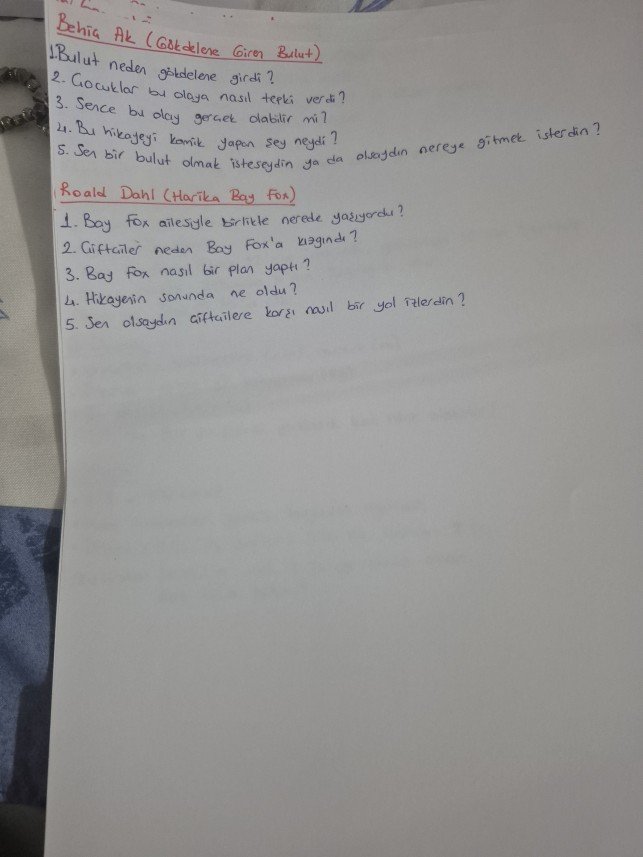 Behiç Ak (Gökdelene Giren Bulut)
1.Bulut neden gökdelene girdi?
2. Çocuklar bu olaya nasıl tepki verdi?
3. Sence bu olay gerçek olabilir mi?
4. Bu hikayeyi komik yapan şey neydi?
5. Sen bir bulut olmak isteseydin ya da olsaydın nereye gitmek isterdin?
Roald Dahl (Harika Bay Fox)
1. Bay Fox ailesiyle birlikte nerede yaşıyordu?
2. Çiftçiler neden Bay Fox'a kızgındı?
3. Bay Fox nasıl bir plan yaptı?
4. Hikayenin sonunda ne oldu?
5. Sen olsaydın çiftçilere karşı nasıl bir yol izlerdin?